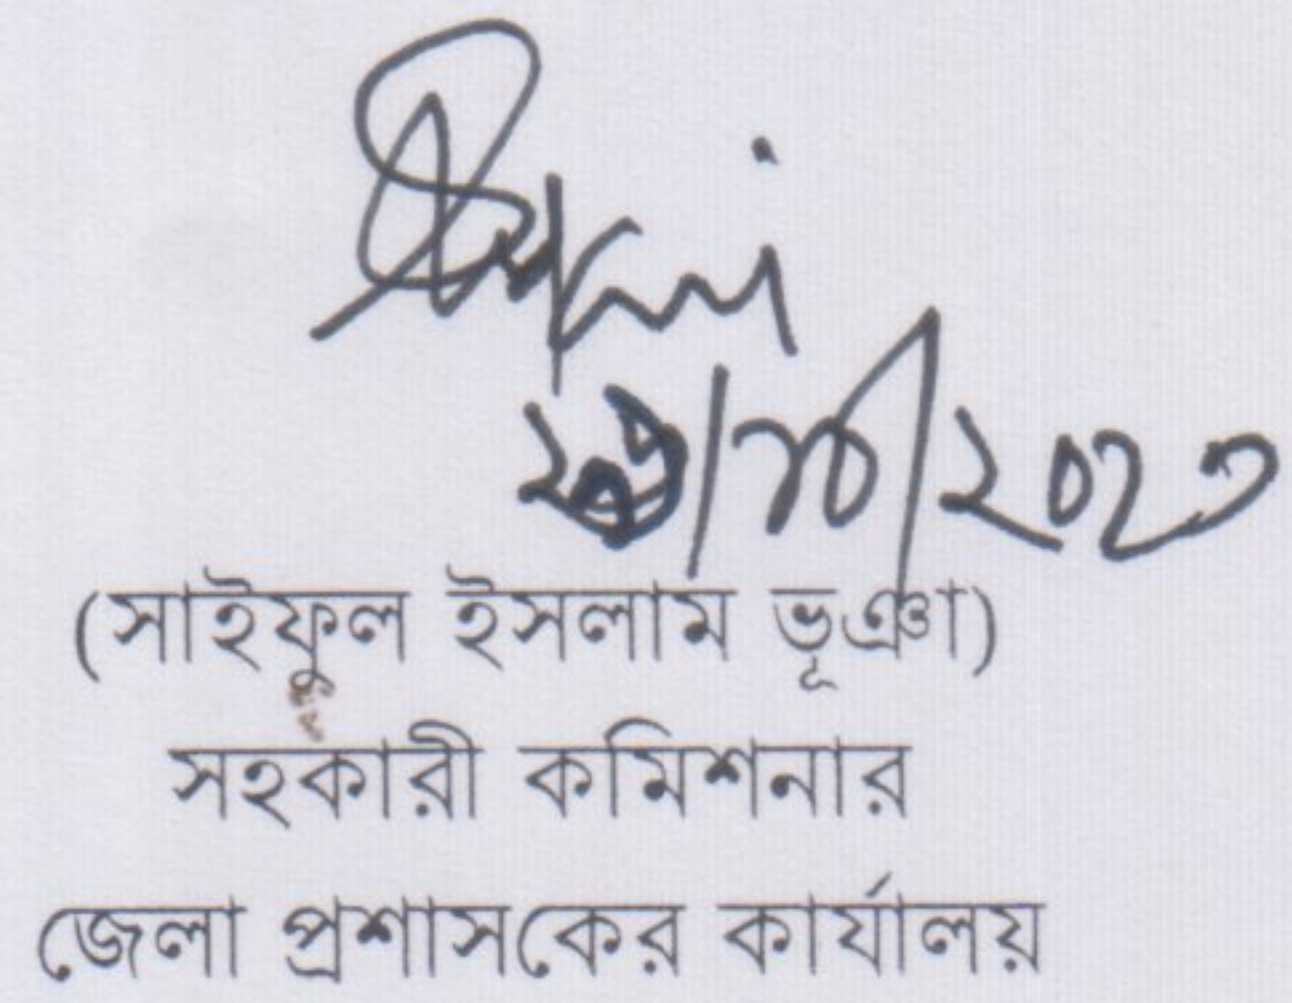 (সাইফুল ইসলাম ভূঞা)
সহকারী কমিশনার
জেলা প্রশাসকের কার্যালয়